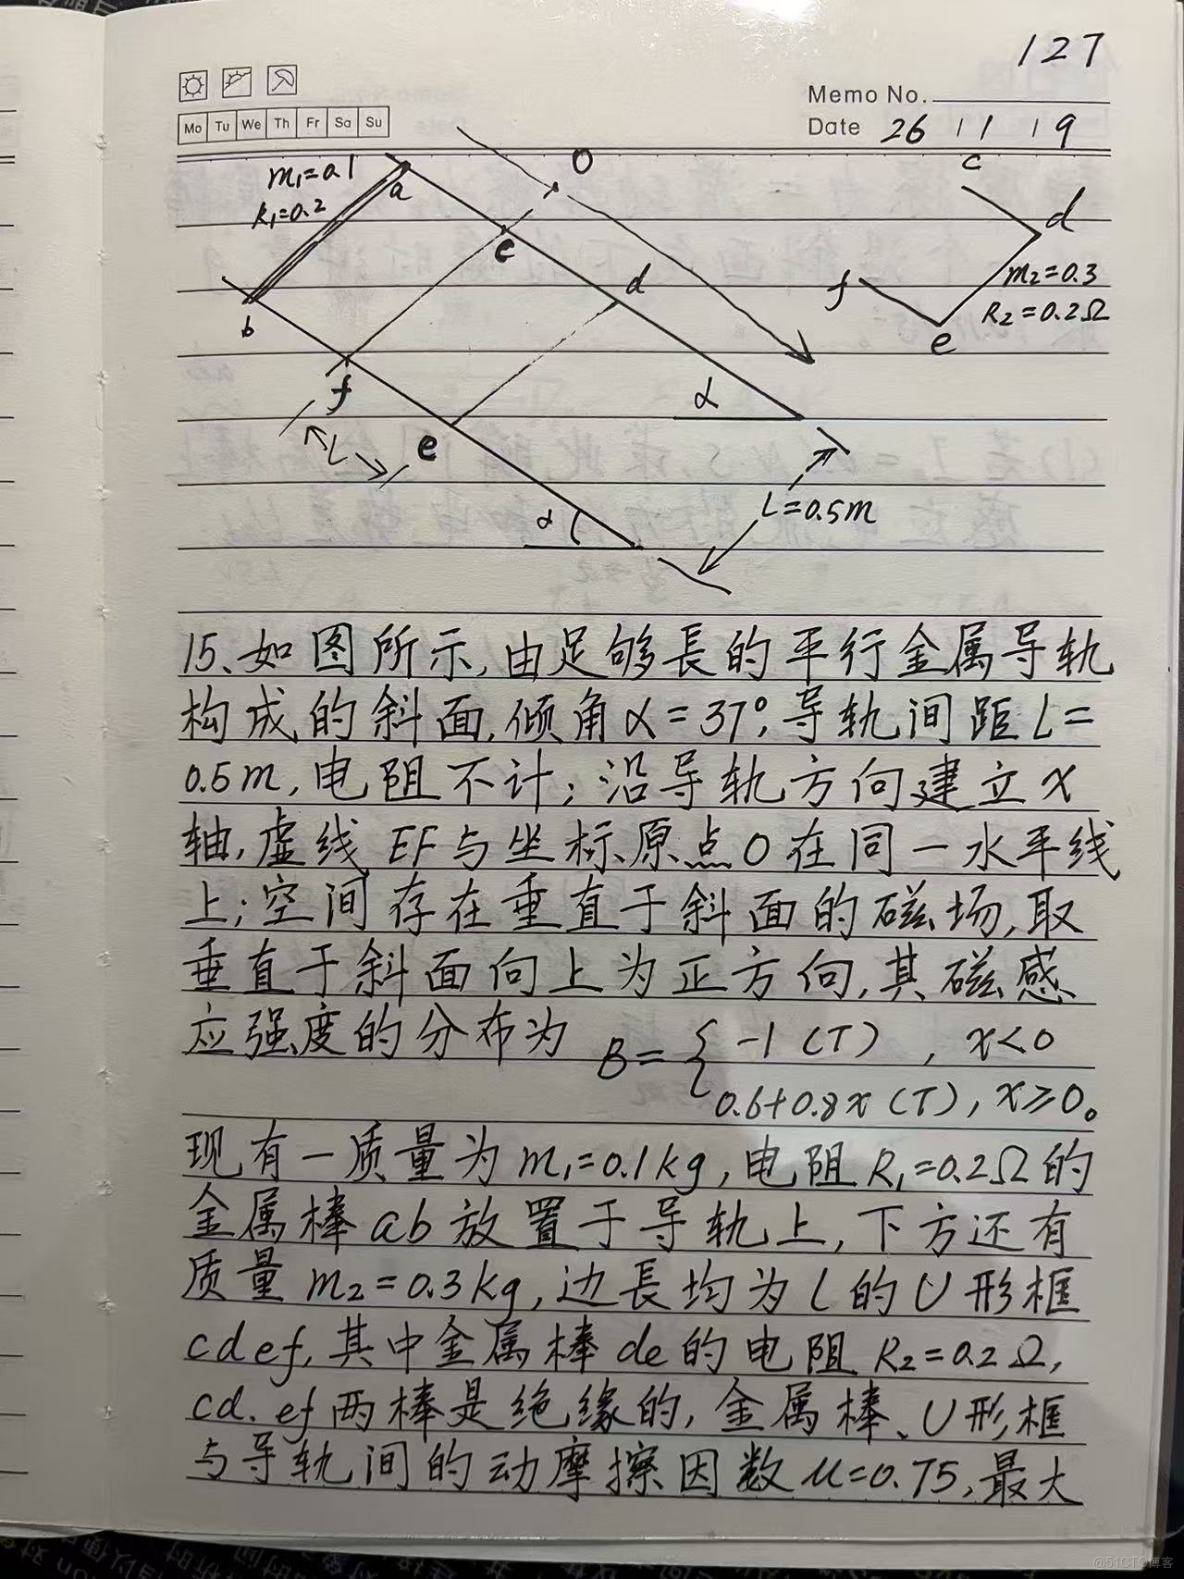 127
Memo No.
Mo Tu We Th Fr Sa Su
Date 26 11 19
m₁=0.1
R₁=0.2
a
b
O
c
d
f
e
α
α
L
L=0.5m
c
d
f
e
m₂=0.3
R₂=0.2Ω
15、如图所示,由足够長的平行金属导轨
构成的斜面,倾角α=37°,导轨间距L=
0.5m,电阻不计;沿导轨方向建立x
轴,虚线EF与坐标原点O在同一水平线
上;空间存在垂直于斜面的磁场,取
垂直于斜面向上为正方向,其磁感
应强度的分布为 B={ -1 (T) , x<0
0.6+0.8x (T), x≥0。
现有一质量为m₁=0.1kg,电阻R₁=0.2Ω的
金属棒ab放置于导轨上,下方还有
质量m₂=0.3kg,边長均为L的U形框
cdef,其中金属棒de的电阻R₂=0.2Ω,
cd.ef两棒是绝缘的,金属棒、U形框
与导轨间的动摩擦因数μ=0.75,最大
@51CTO博客